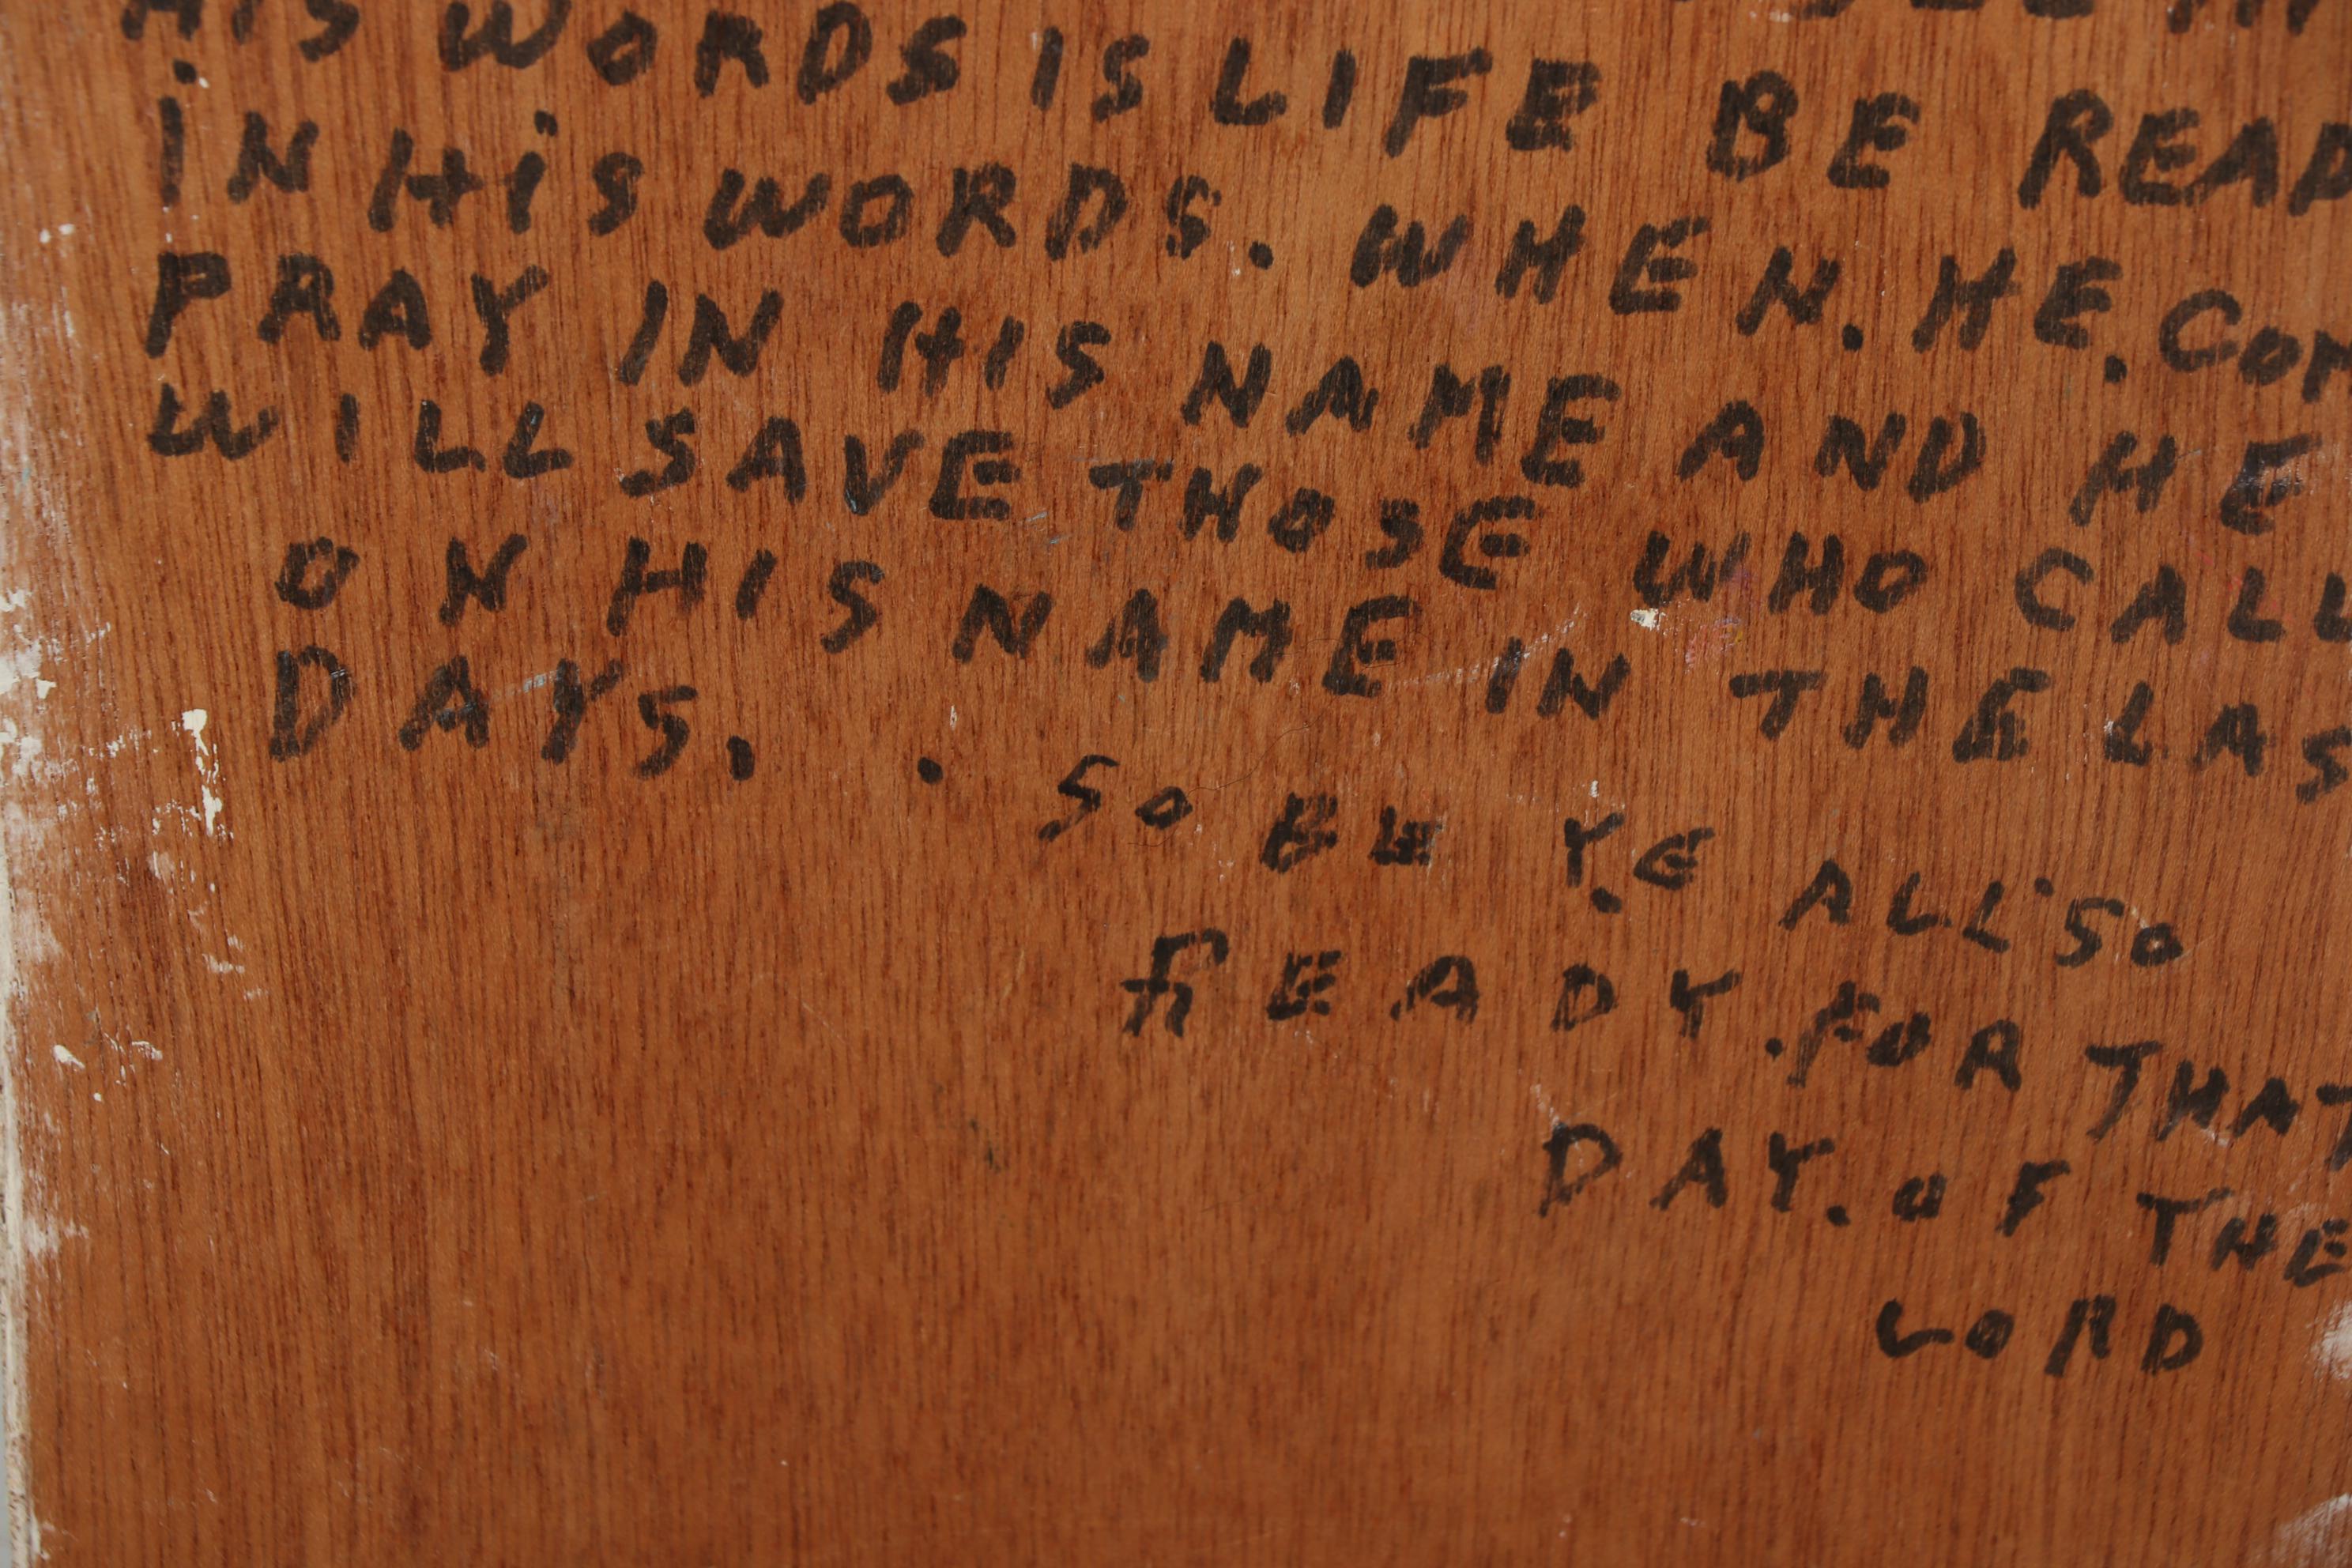 HIS WORDS IS LIFE BE READ
IN HIS WORDS. WHEN. HE. COM
PRAY IN HIS NAME AND HE
WILL SAVE THOSE WHO CALL
ON HIS NAME IN THE LAS
DAYS. . SO BE YE ALL'SO
READY. FOR THAT
DAY. OF THE
LORD